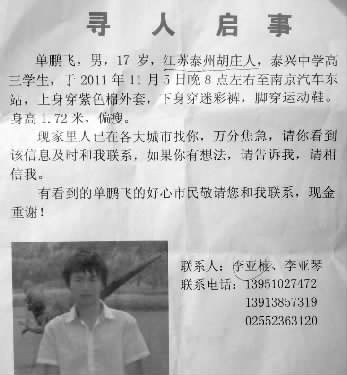 寻人启事
单鹏飞，男，17岁，江苏泰州胡庄人，泰兴中学高
三学生，于2011年11月5日晚8点左右至南京汽车东
站，上身穿紫色棉外套，下身穿迷彩裤，脚穿运动鞋。
身高1.72米，偏瘦。
现家里人已在各大城市找你，万分焦急，请你看到
该信息及时和我联系，如果你有想法，请告诉我，请相
信我。
有看到的单鹏飞的好心市民敬请您和我联系，现金
重谢！
联系人：李亚、李亚琴
联系电话：13951027472
13913857319
02552363120